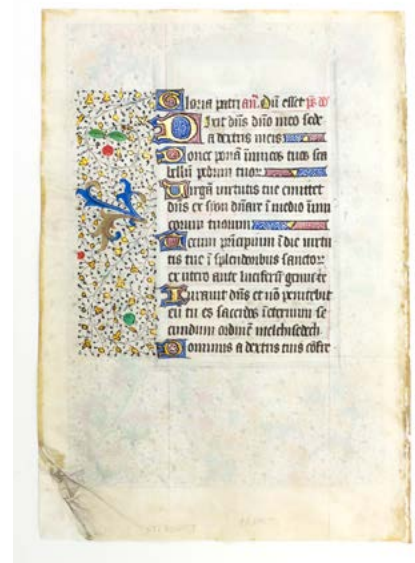 Gloria patri añ. Dũ esset ps dd
Dixit dñs dño meo sede
a dextris meis
Donec ponã inimicos tuos sca
bellũ pedum tuor
Virgã virtutis tue emittet
dñs ex syon dñare ĩ medio inim
icorum tuorum
Tecum prĩcipium ĩ die virtu
tis tue ĩ splendoribus sanctor
ex utero ante luciferũ genui te
Iuravit dñs et nõ penitebit
eũ tu es sacerdos ĩ eternum se
cundum ordinẽ melchisedech
Dominus a dextris tuis cõfre